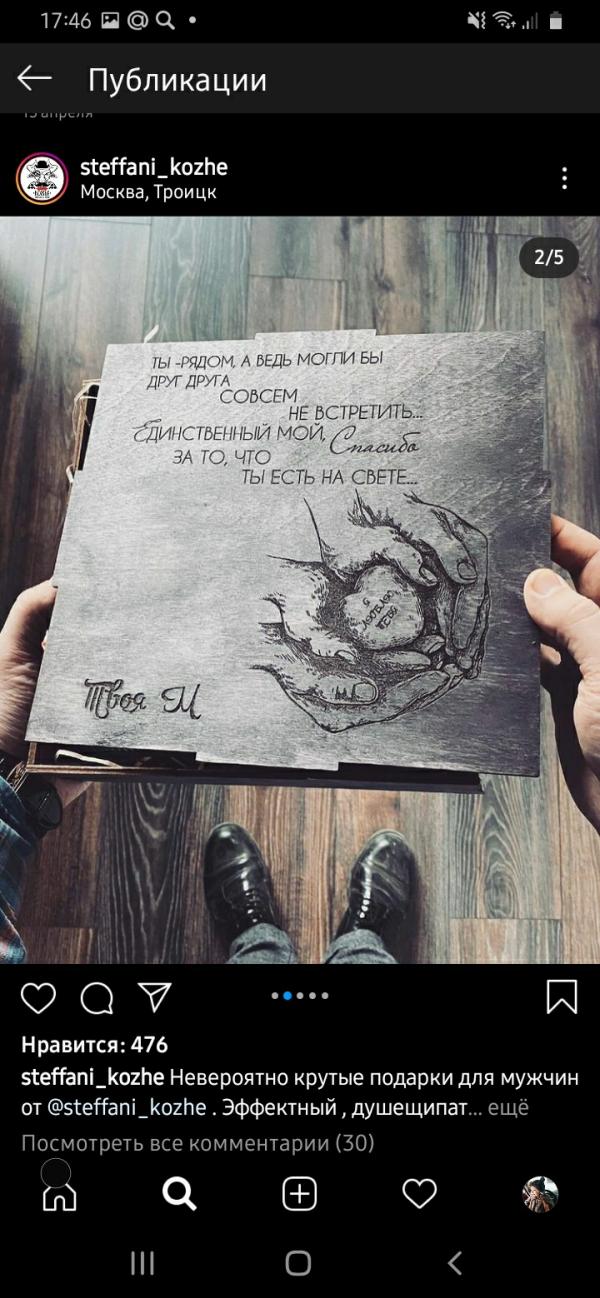 17:46
Публикации
13 апреля
steffani_kozhe
Москва, Троицк
2/5
ТЫ -РЯДОМ, А ВЕДЬ МОГЛИ БЫ
ДРУГ ДРУГА
СОВСЕМ
НЕ ВСТРЕТИТЬ...
ЕДИНСТВЕННЫЙ МОЙ, Спасибо
ЗА ТО, ЧТО
ТЫ ЕСТЬ НА СВЕТЕ...
Я
ЛЮБЛЮ
ТЕБЯ
Твоя М
Нравится: 476
steffani_kozhe Невероятно крутые подарки для мужчин
от @steffani_kozhe . Эффектный , душещипат... ещё
Посмотреть все комментарии (30)